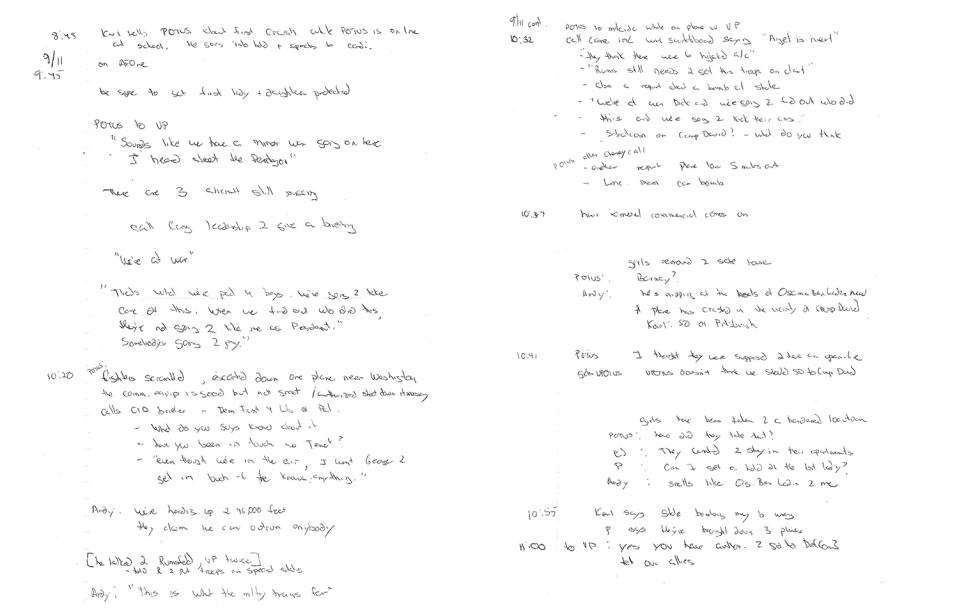 8:45 Karl tells POTUS about first crash while POTUS is on line
at school. He goes into hold + speaks to Condi.
9/11
9:45 on AFOne
be sure to get first lady + daughters protected
POTUS to VP
"Sounds like we have a minor war going on here
I heard about the Pentagon"
There are 3 aircraft still missing
call Cong leadership 2 give a briefing
"We're at war"
"That's what we're paid 4 boys. We're going 2 take
care of this. When we find out who did this,
they're not going 2 like me as President."
Somebody's going 2 pay."
10:20 POTUS: fighters scrambled, escorted down one plane near Washington
the comm. equip is good but not great / authorized shot down if necessary
calls CIA briefer - Dem Front 4 Lib of Pal.
- What do you guys know about it
- have you been in touch w/ Tenet?
- "even though we're in the air, I want George 2
get in touch if he knows anything."
Andy: We're heading up 2 45,000 feet
they claim we can outrun anybody
[he talked 2 Rumsfeld, VP twice]
- told R 2 put troops on special status
Andy: "This is what the mltry trains for"
9/11 cont. POTUS to motorcade while on phone w VP
10:32 call came into WH switchboard saying "Angel is next"
- "they think there were 6 hijacked a/c"
- "Rums still needs 2 get this troops on alert"
- also a report about a bomb at State
- "We're at war Dick and we're going 2 find out who did
- this and we're going 2 kick their ass."
- Situation on Camp David? - What do you think
POTUS after Cheney call
- another report plane low 5 miles out
- Linc. Mem car bomb
10:37 have several commercial carriers on
girls removed 2 safe house
POTUS: Barney?
Andy: he's nipping at the heels of Osama Bin Laden now
A plane has crashed in the vicinity of Camp David
Karl: SO of Pittsburgh
10:41 POTUS I thought they were supposed 2 have an open line
VPOTUS doesn't think we should go to Camp David
girls have been taken 2 a hardened location
POTUS: how did they take that?
E): They wanted 2 stay in their apartments
P: Can I get a hold of the 1st lady?
Andy: smells like Os. Bin Laden 2 me
10:55 Karl says State bombing may b wrong
P says they've brought down 3 planes
11:00 to VP: yes you have author. 2 go to DefCon3
tell our allies